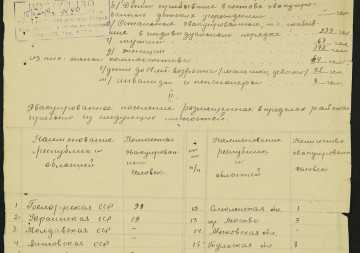 б/ Детей прибывшие в составе эвакуиро-
ванных детских учреждений —
в/ Остальное эвакуированное, т.е. прибыв-
шие в индивидуальном порядке 239 чел.
г/ мужчин 67 чел.
д/ женщин 172 чел.
из них: жены комсостава 64 чел.
дети до 14 лет возраста /мальчики, девочки/ 95 чел.
инвалиды и пенсионеры 8 чел.
II
Эвакуированное население размещенное в пределах района
прибыло из следующих местностей:
Наименование республик и областей
Количество эвакуирован. человек
№ п/п
Наименование республик и областей
Количество эвакуирован. человек
1. Белорусская ССР 98 12. Смоленская обл. 1
2. Украинская ССР 19 13. гор Москва 3
3. Молдавская ССР - 14. Московская обл. -
4. Литовская ССР - 15. Тульская обл. 8